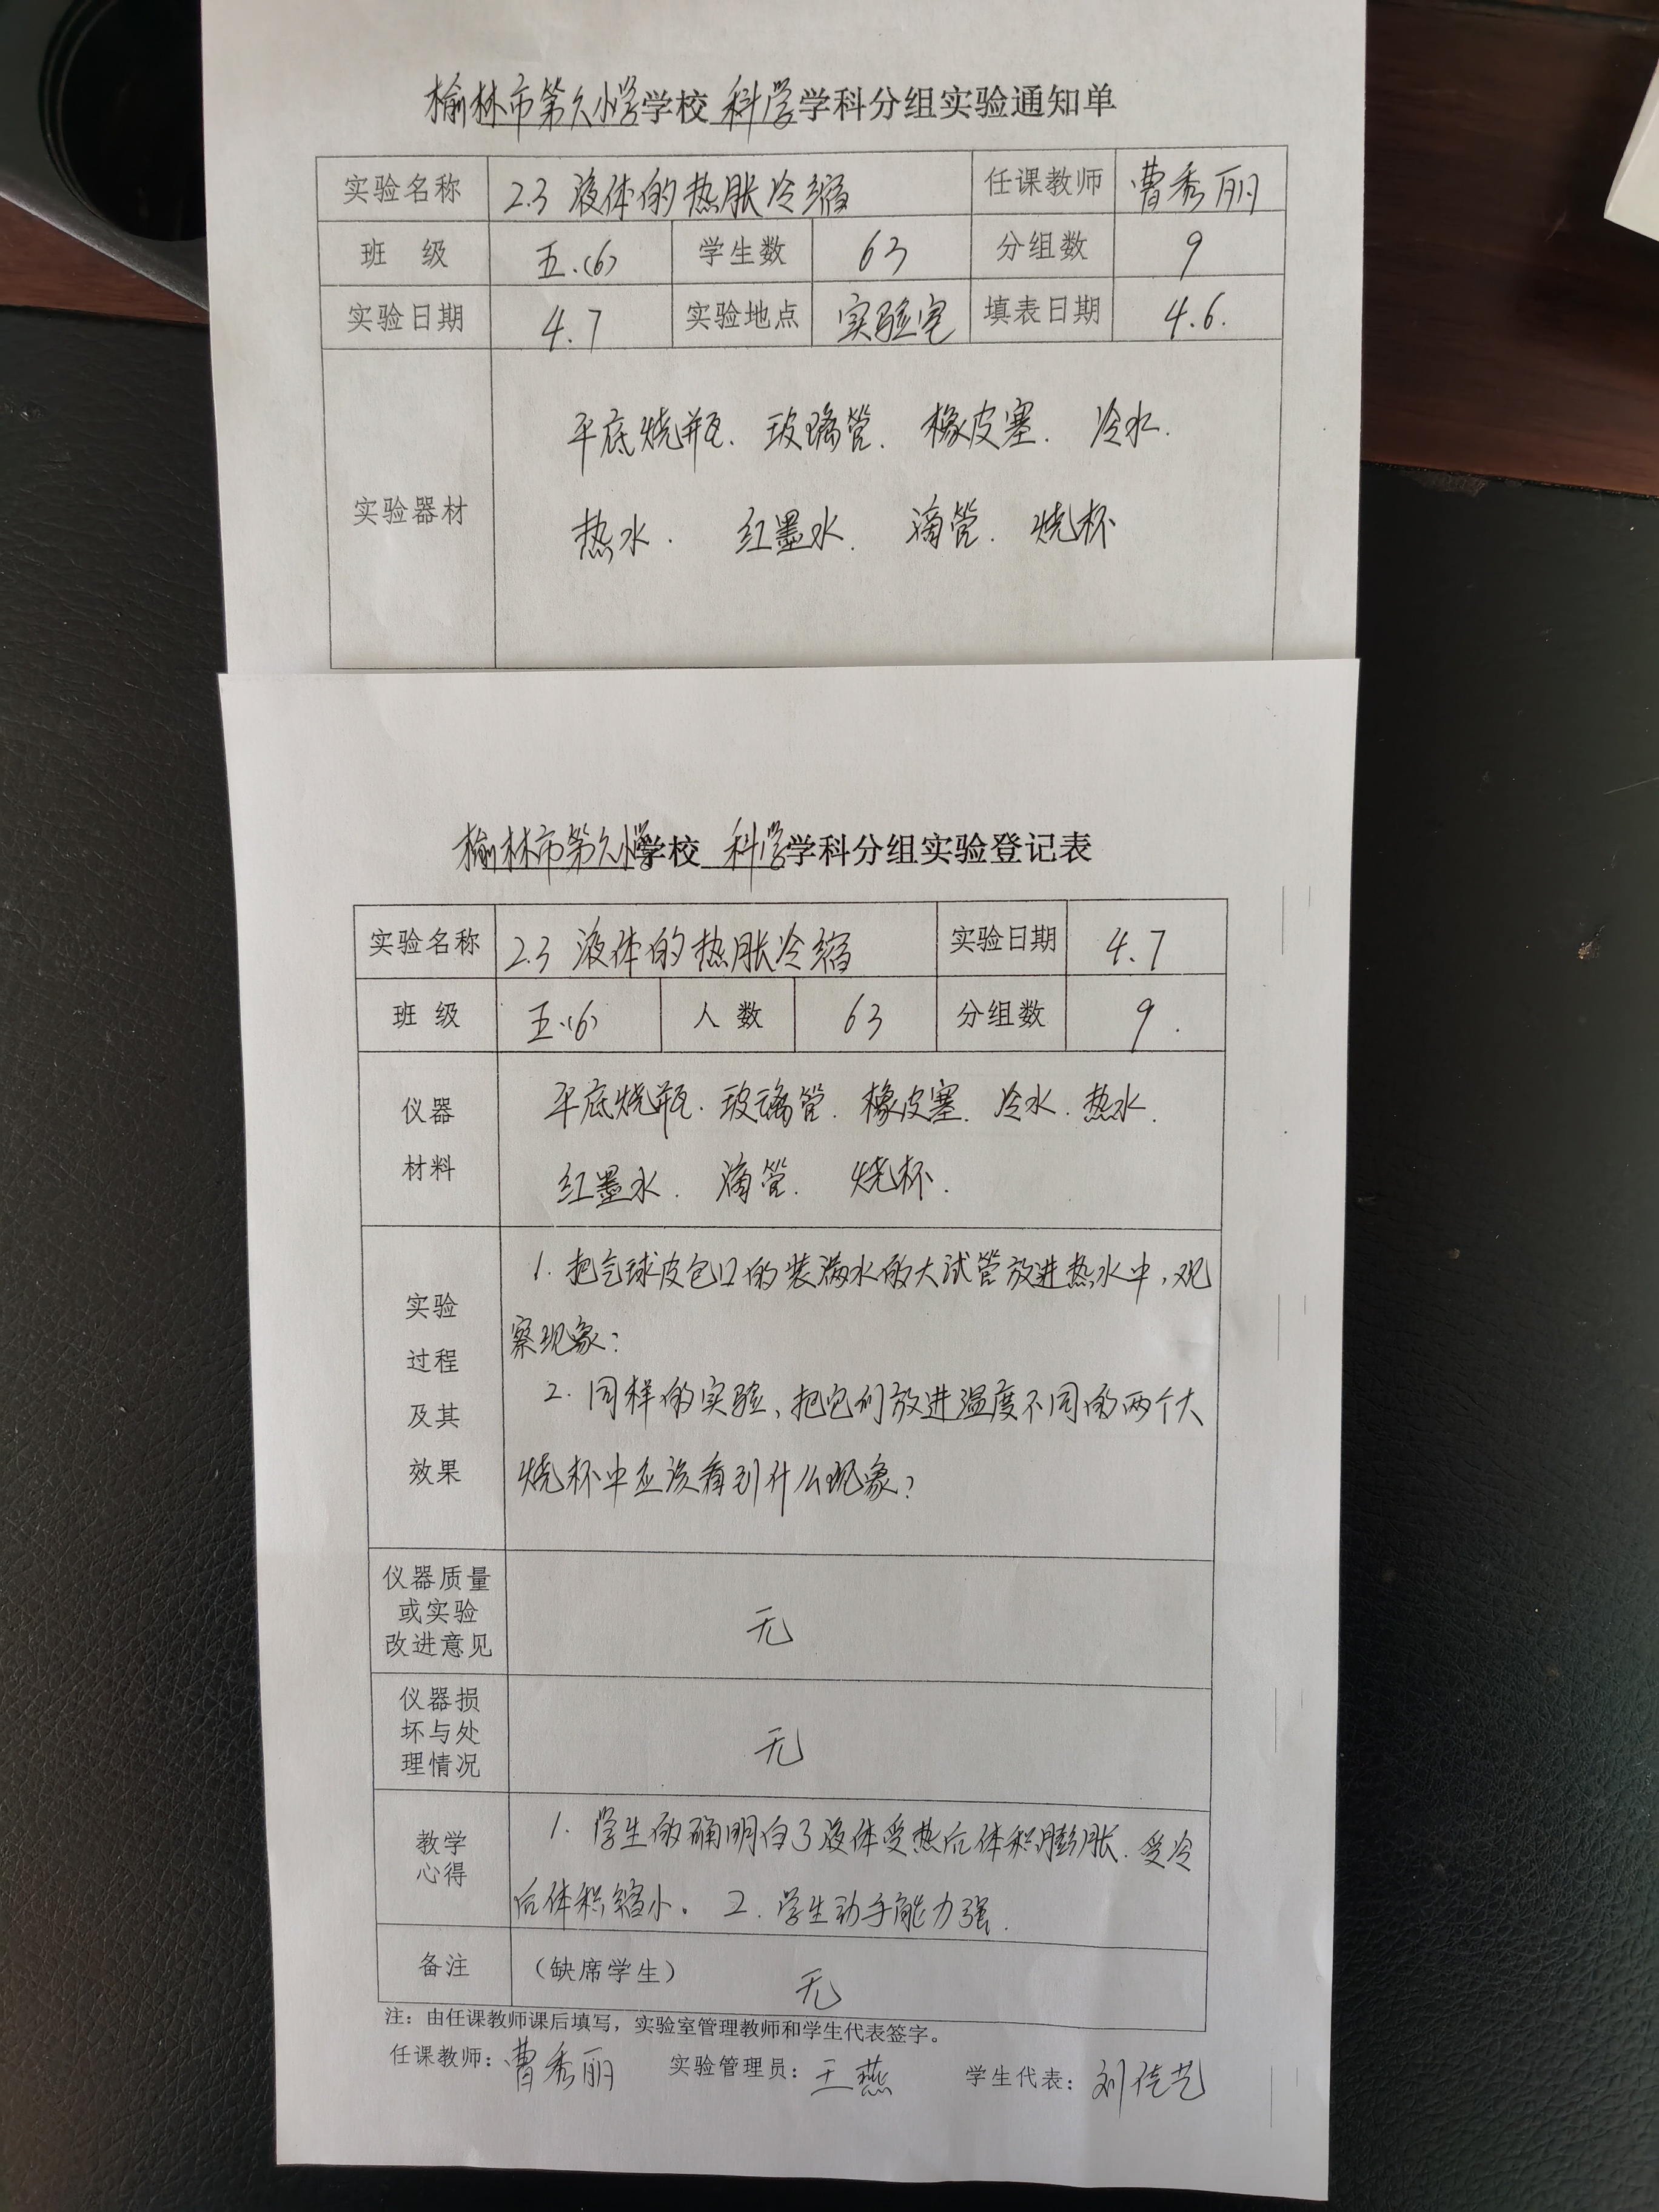 榆林市第九小学学校 科学学科分组实验通知单
实验名称 2.3 液体的热胀冷缩 任课教师 曹秀丽
班 级 五.(6) 学生数 63 分组数 9
实验日期 4.7 实验地点 实验室 填表日期 4.6.
平底烧瓶. 玻璃管. 橡皮塞. 冷水.
实验器材
热水. 红墨水. 滴管. 烧杯
榆林市第九小学学校 科学学科分组实验登记表
实验名称 2.3 液体的热胀冷缩 实验日期 4.7
班 级 五.(6) 人 数 63 分组数 9.
仪器
材料
平底烧瓶. 玻璃管. 橡皮塞. 冷水. 热水.
红墨水. 滴管. 烧杯.
实验
过程
及其
效果
1. 把气球皮包口的装满水的大试管放进热水中,观
察现象:
2. 同样的实验、把它们放进温度不同的两个大
烧杯中应该看到什么现象?
仪器质量
或实验
改进意见
无
仪器损
坏与处
理情况
无
教学
心得
1. 学生的确明白了液体受热后体积膨胀. 受冷
后体积缩小。 2. 学生动手能力强.
备注 (缺席学生) 无
注: 由任课教师课后填写,实验室管理教师和学生代表签字。
任课教师: 曹秀丽 实验管理员: 王燕 学生代表: 刘佳艺